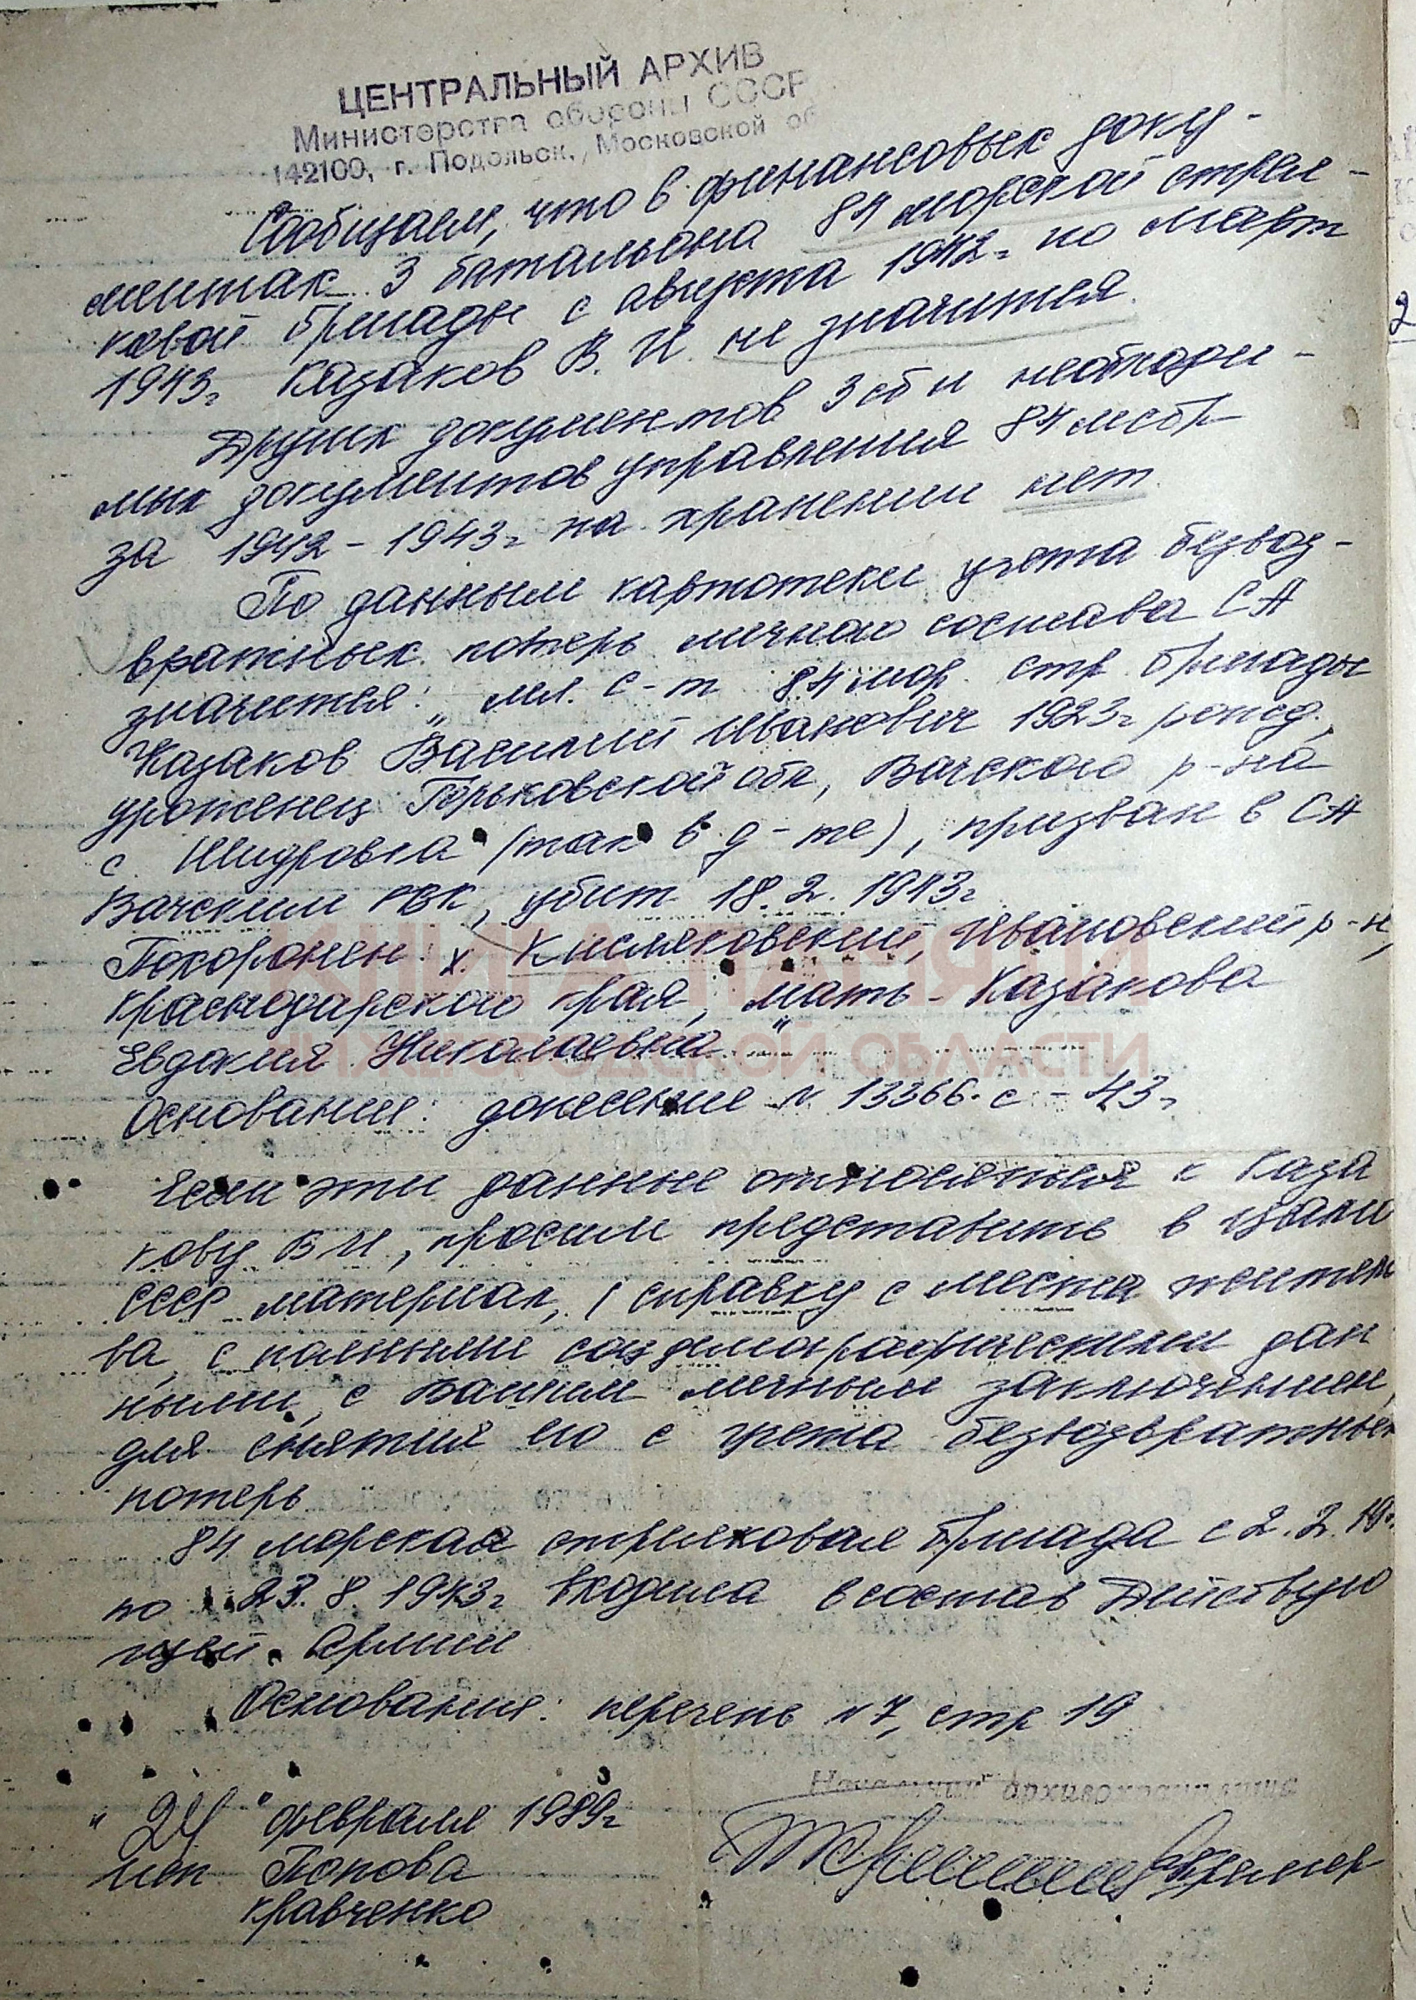 ЦЕНТРАЛЬНЫЙ АРХИВ
Министерства обороны СССР
142100, г. Подольск, Московской об
Сообщаем, что в финансовых доку-
ментах 3 батальона 84 морской стрел-
ковой бригады с августа 1942г по март
1943г Казаков В. И. не значится.
Других документов 3 сб и необходи-
мых документов управления 84 мсбр
за 1942-1943г на хранении нет.
По данным картотеки учета безвоз-
вратных потерь личного состава СА
значится: „мл. с-т 84 мор. стр. бригады
Казаков Василий Иванович 1923г рожд.,
уроженец Горьковской обл, Вачского р-на
с. Шидровка (так в д-те), призван в СА
Вачским РВК, убит 18.2.1943г
Похоронен: х. Кисляковский, Ивановский р-н,
Краснодарского края, мать - Казакова
Евдокия Николаевна"
Основание: донесение № 13366 с-43г
Если эти данные относятся к Каза
кову В И, просим представить в ЦАМО
СССР материал, (справку с места жительс
ва, с полными соцдемографическими дан
ными, с Вашим личным заключением,
для снятия его с учета безвозвратных
потерь
84 морская стрелковая бригада с 2.2.19
по 23.8.1943г входила в состав Действую
щей Армии
Основание: перечень №7, стр 19
Начальник архивохранилища
„24" февраля 1989г
исп Попова
Кравченко
КНИГА ПАМЯТИ
НИЖЕГОРОДСКОЙ ОБЛАСТИ
2